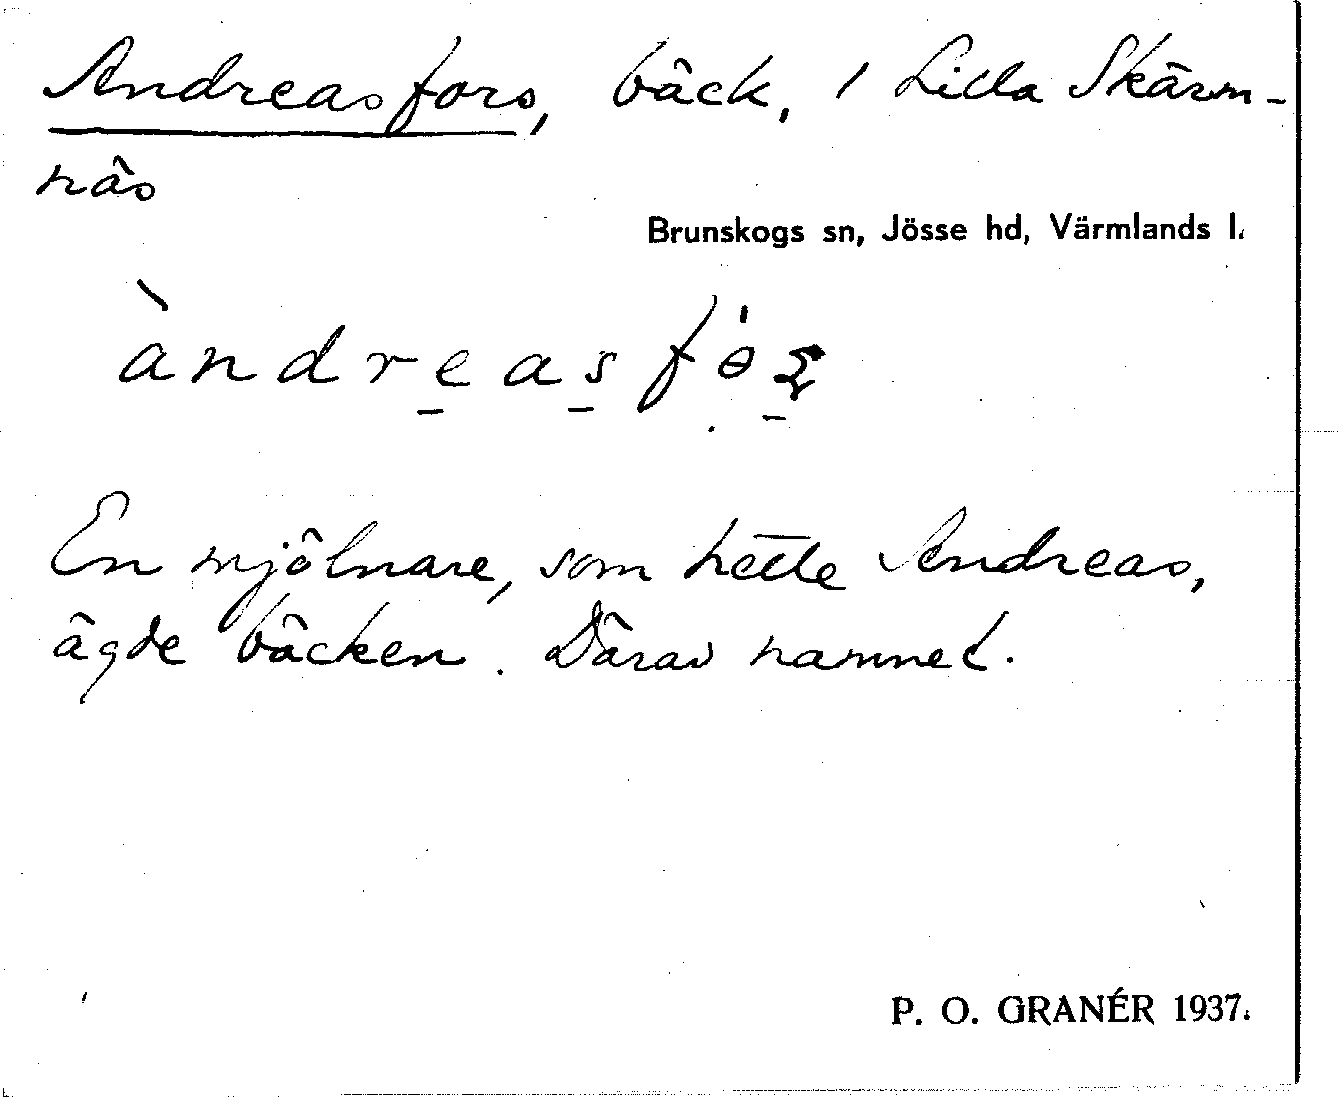 Andreasfors, bäck, i Lilla Skärm-
näs
Brunskogs sn, Jösse hd, Värmlands l.
àndreasfɵʂ
En mjölnare, som hette Andreas,
ägde bäcken. Därav namnet.
P. O. GRANÉR 1937.